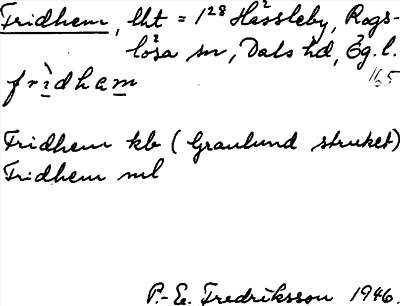 Fridhem, lht = 1²⁸ Hässleby, Rogs-
lösa sn, Dals hd, Ög. l.
16.5
frì̱dham̱
Fridhem kb (Granlund struket)
Fridhem ml
P.-E. Fredriksson 1946.